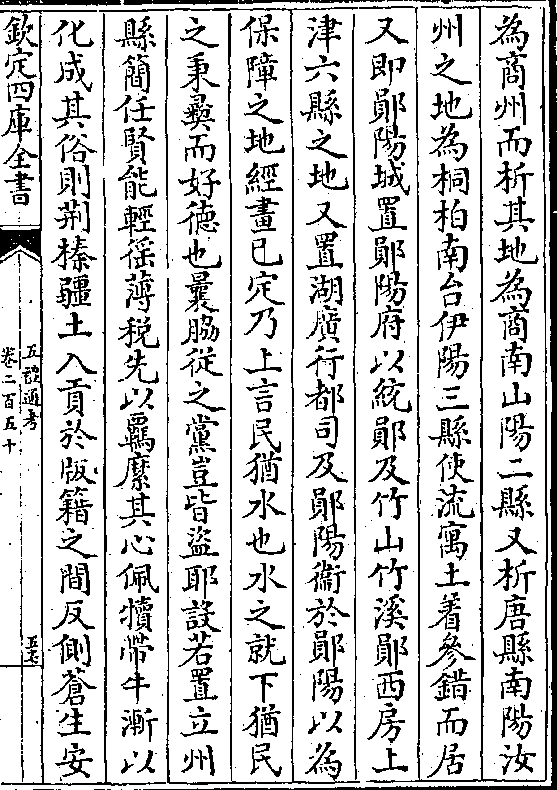 為商州而析其地為商南山陽二縣又析唐縣南陽汝
州之地為桐柏南台伊陽三縣使流寓土著參錯而居
又即鄖陽城置鄖陽府以統鄖及竹山竹溪鄖西房上
津六縣之地又置湖廣行都司及鄖陽衞於鄖陽以為
保障之地經畫已定乃上言民猶水也水之就下猶民
之秉彝而好徳也曩脇從之黨豈皆盜耶設若置立州
縣簡任賢能輕徭薄稅先以羈縻其心佩犢帶牛漸以
化成其俗則荆榛疆土入貢於版籍之間反側蒼生安
欽定四庫全書
五禮通考
卷二百五十
五七